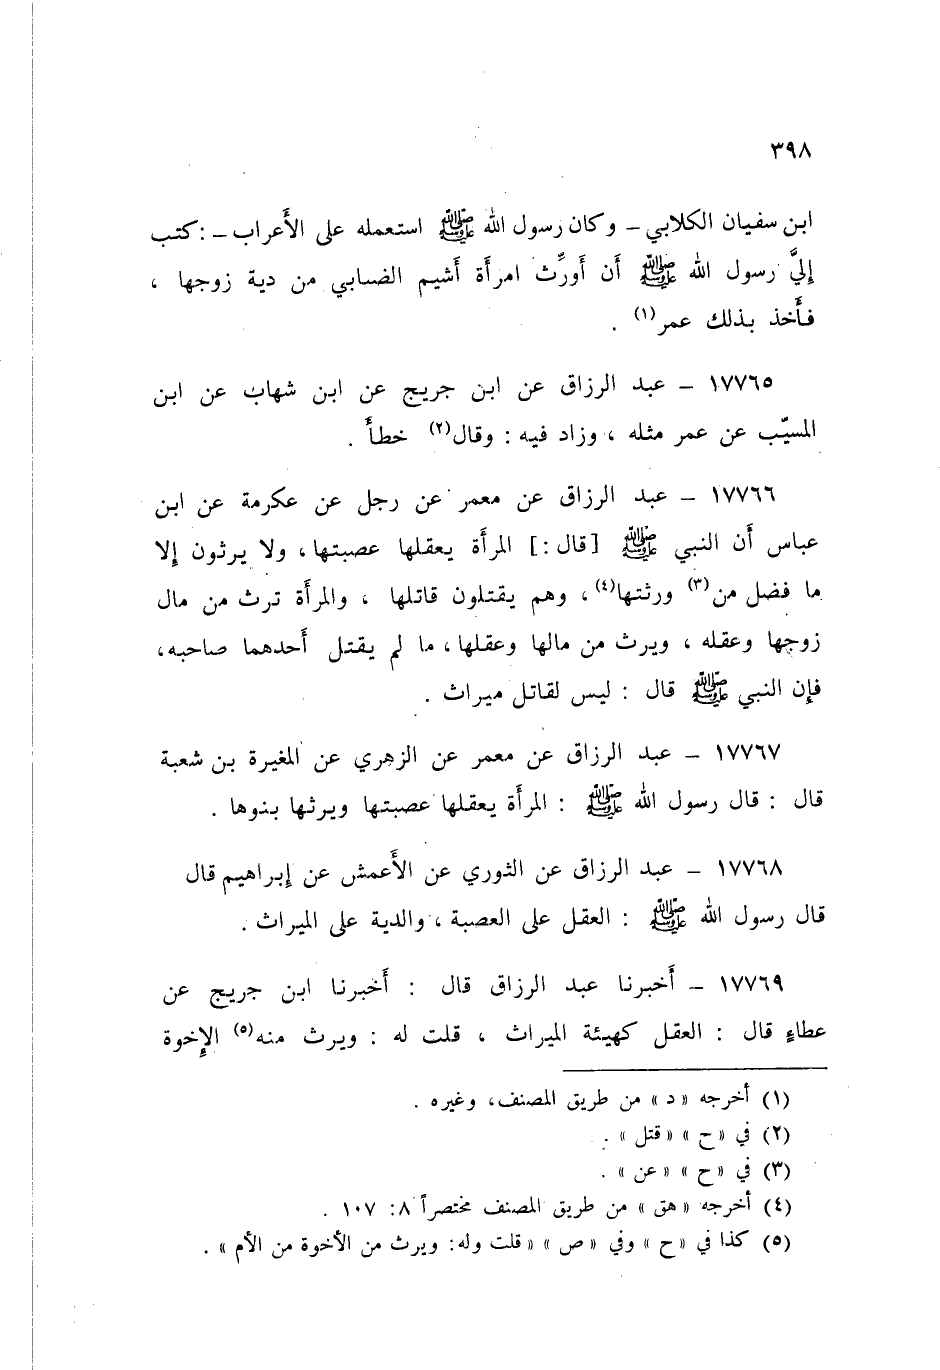 ٣٩٨
ابن سفيان الكلابي – وكان رسول الله ﷺ استعمله على الأَعراب – : كتب
إليَّ رسول الله ﷺ أَن أَورِّث امرأَة أَشيم الضبابي من دية زوجها ،
فأَخذ بذلك عمر(١) .
١٧٧٦٥ – عبد الرزاق عن ابن جريج عن ابن شهاب عن ابن
المسيّب عن عمر مثله ، وزاد فيه : وقال(٢) خطأَ .
١٧٧٦٦ – عبد الرزاق عن معمر عن رجل عن عكرمة عن ابن
عباس أَن النبي ﷺ [قال :] المرأَة يعقلها عصبتها ، ولا يرثون إلا
ما فضل من(٣) ورثتها(٤) ، وهم يقتلون قاتلها ، والمرأَة ترث من مال
زوجها وعقله ، ويرث من مالها وعقلها ، ما لم يقتل أَحدهما صاحبه ،
فإن النبي ﷺ قال : ليس لقاتل ميراث .
١٧٧٦٧ – عبد الرزاق عن معمر عن الزهري عن المغيرة بن شعبة
قال : قال رسول الله ﷺ : المرأَة يعقلها عصبتها ويرثها بنوها .
١٧٧٦٨ – عبد الرزاق عن الثوري عن الأَعمش عن إبراهيم قال
قال رسول الله ﷺ : العقل على العصبة ، والدية على الميراث .
١٧٧٦٩ – أَخبرنا عبد الرزاق قال : أَخبرنا ابن جريج عن
عطاءٍ قال : العقل كهيئة الميراث ، قلت له : ويرث منه(٥) الإخوة
(١) أخرجه «د» من طريق المصنف، وغيره .
(٢) في «ح» «قتل» .
(٣) في «ح» «عن» .
(٤) أخرجه «هق» من طريق المصنف مختصراً ٨: ١٠٧ .
(٥) كذا في «ح» وفي «ص» «قلت وله: ويرث من الأخوة من الأم» .